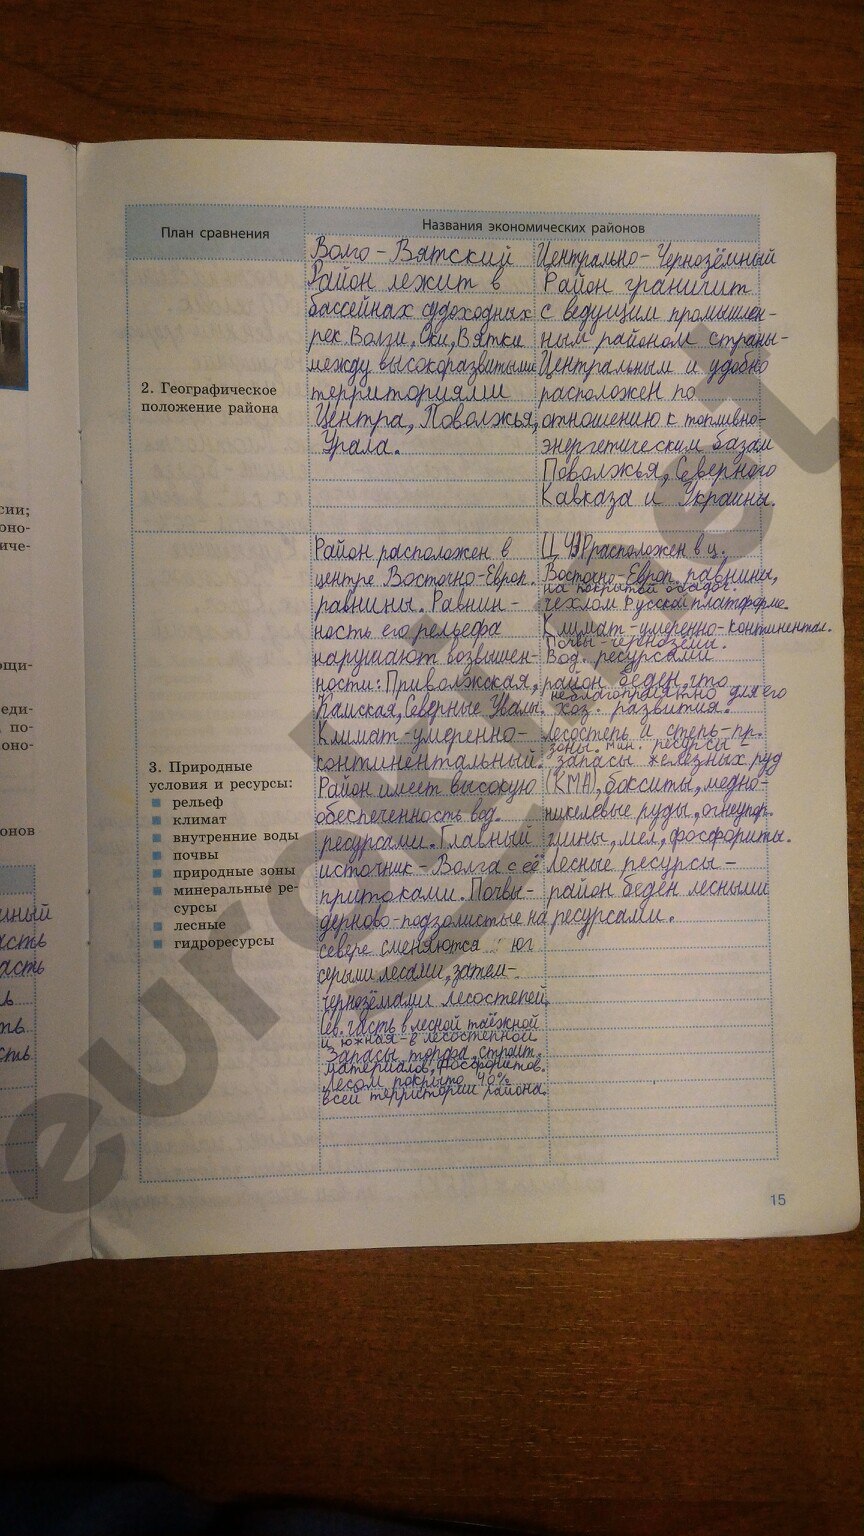 План сравнения
Названия экономических районов
Волго-Вятский
Район лежит в
бассейнах судоходных
рек Волги, Оки, Вятки
между высокоразвитыми
территориями
Центра, Поволжья,
Урала.
Центрально-Чернозёмный
Район граничит
с ведущим промышлен-
ным районом страны-
Центральным и удобно
расположен по
отношению к топливно-
энергетическим базам
Поволжья, Северного
Кавказа и Украины.
2. Географическое
положение района
Район расположен в
центре Восточно-Европ.
равнины. Равнин-
ность его рельефа
нарушают возвышен-
ности: Приволжская,
Камская, Северные Увалы.
Климат-умеренно-
континентальный.
Район имеет высокую
обеспеченность вод.
ресурсами. Главный
источник - Волга с её
притоками. Почвы-
дерново-подзолистые на
севере сменяются юг
серыми лесами, затем-
чернозёмами лесостепей.
Сев. часть в лесной таёжной
и южная-в лесостепной
Запасы торфа, строит.
материалов, фосфоритов.
Лесом покрыто 40%
всей территории района.
ЦЧЭР расположен в ц.
Восточно-Европ. равнины,
на покрытой осадоч.
чехлом Русской платформе.
Климат-умеренно-континентал.
Почвы-чернозёмы.
Вод. ресурсами
район беден, что
неблагоприятно для его
хоз. развития.
лесостепь и степь-пр.
зоны. Мин. ресурсы -
запасы железных руд
(КМА), бокситы, медно-
никелевые руды, огнеупор.
глины, мел, фосфориты.
Лесные ресурсы -
район беден лесными
ресурсами.
3. Природные
условия и ресурсы:
рельеф
климат
внутренние воды
почвы
природные зоны
минеральные ре-
сурсы
лесные
гидроресурсы
15
сии;
оно-
иче-
ощи-
еди-
по-
оно-
онов
асть
асть
ть
сть
eurokî.net